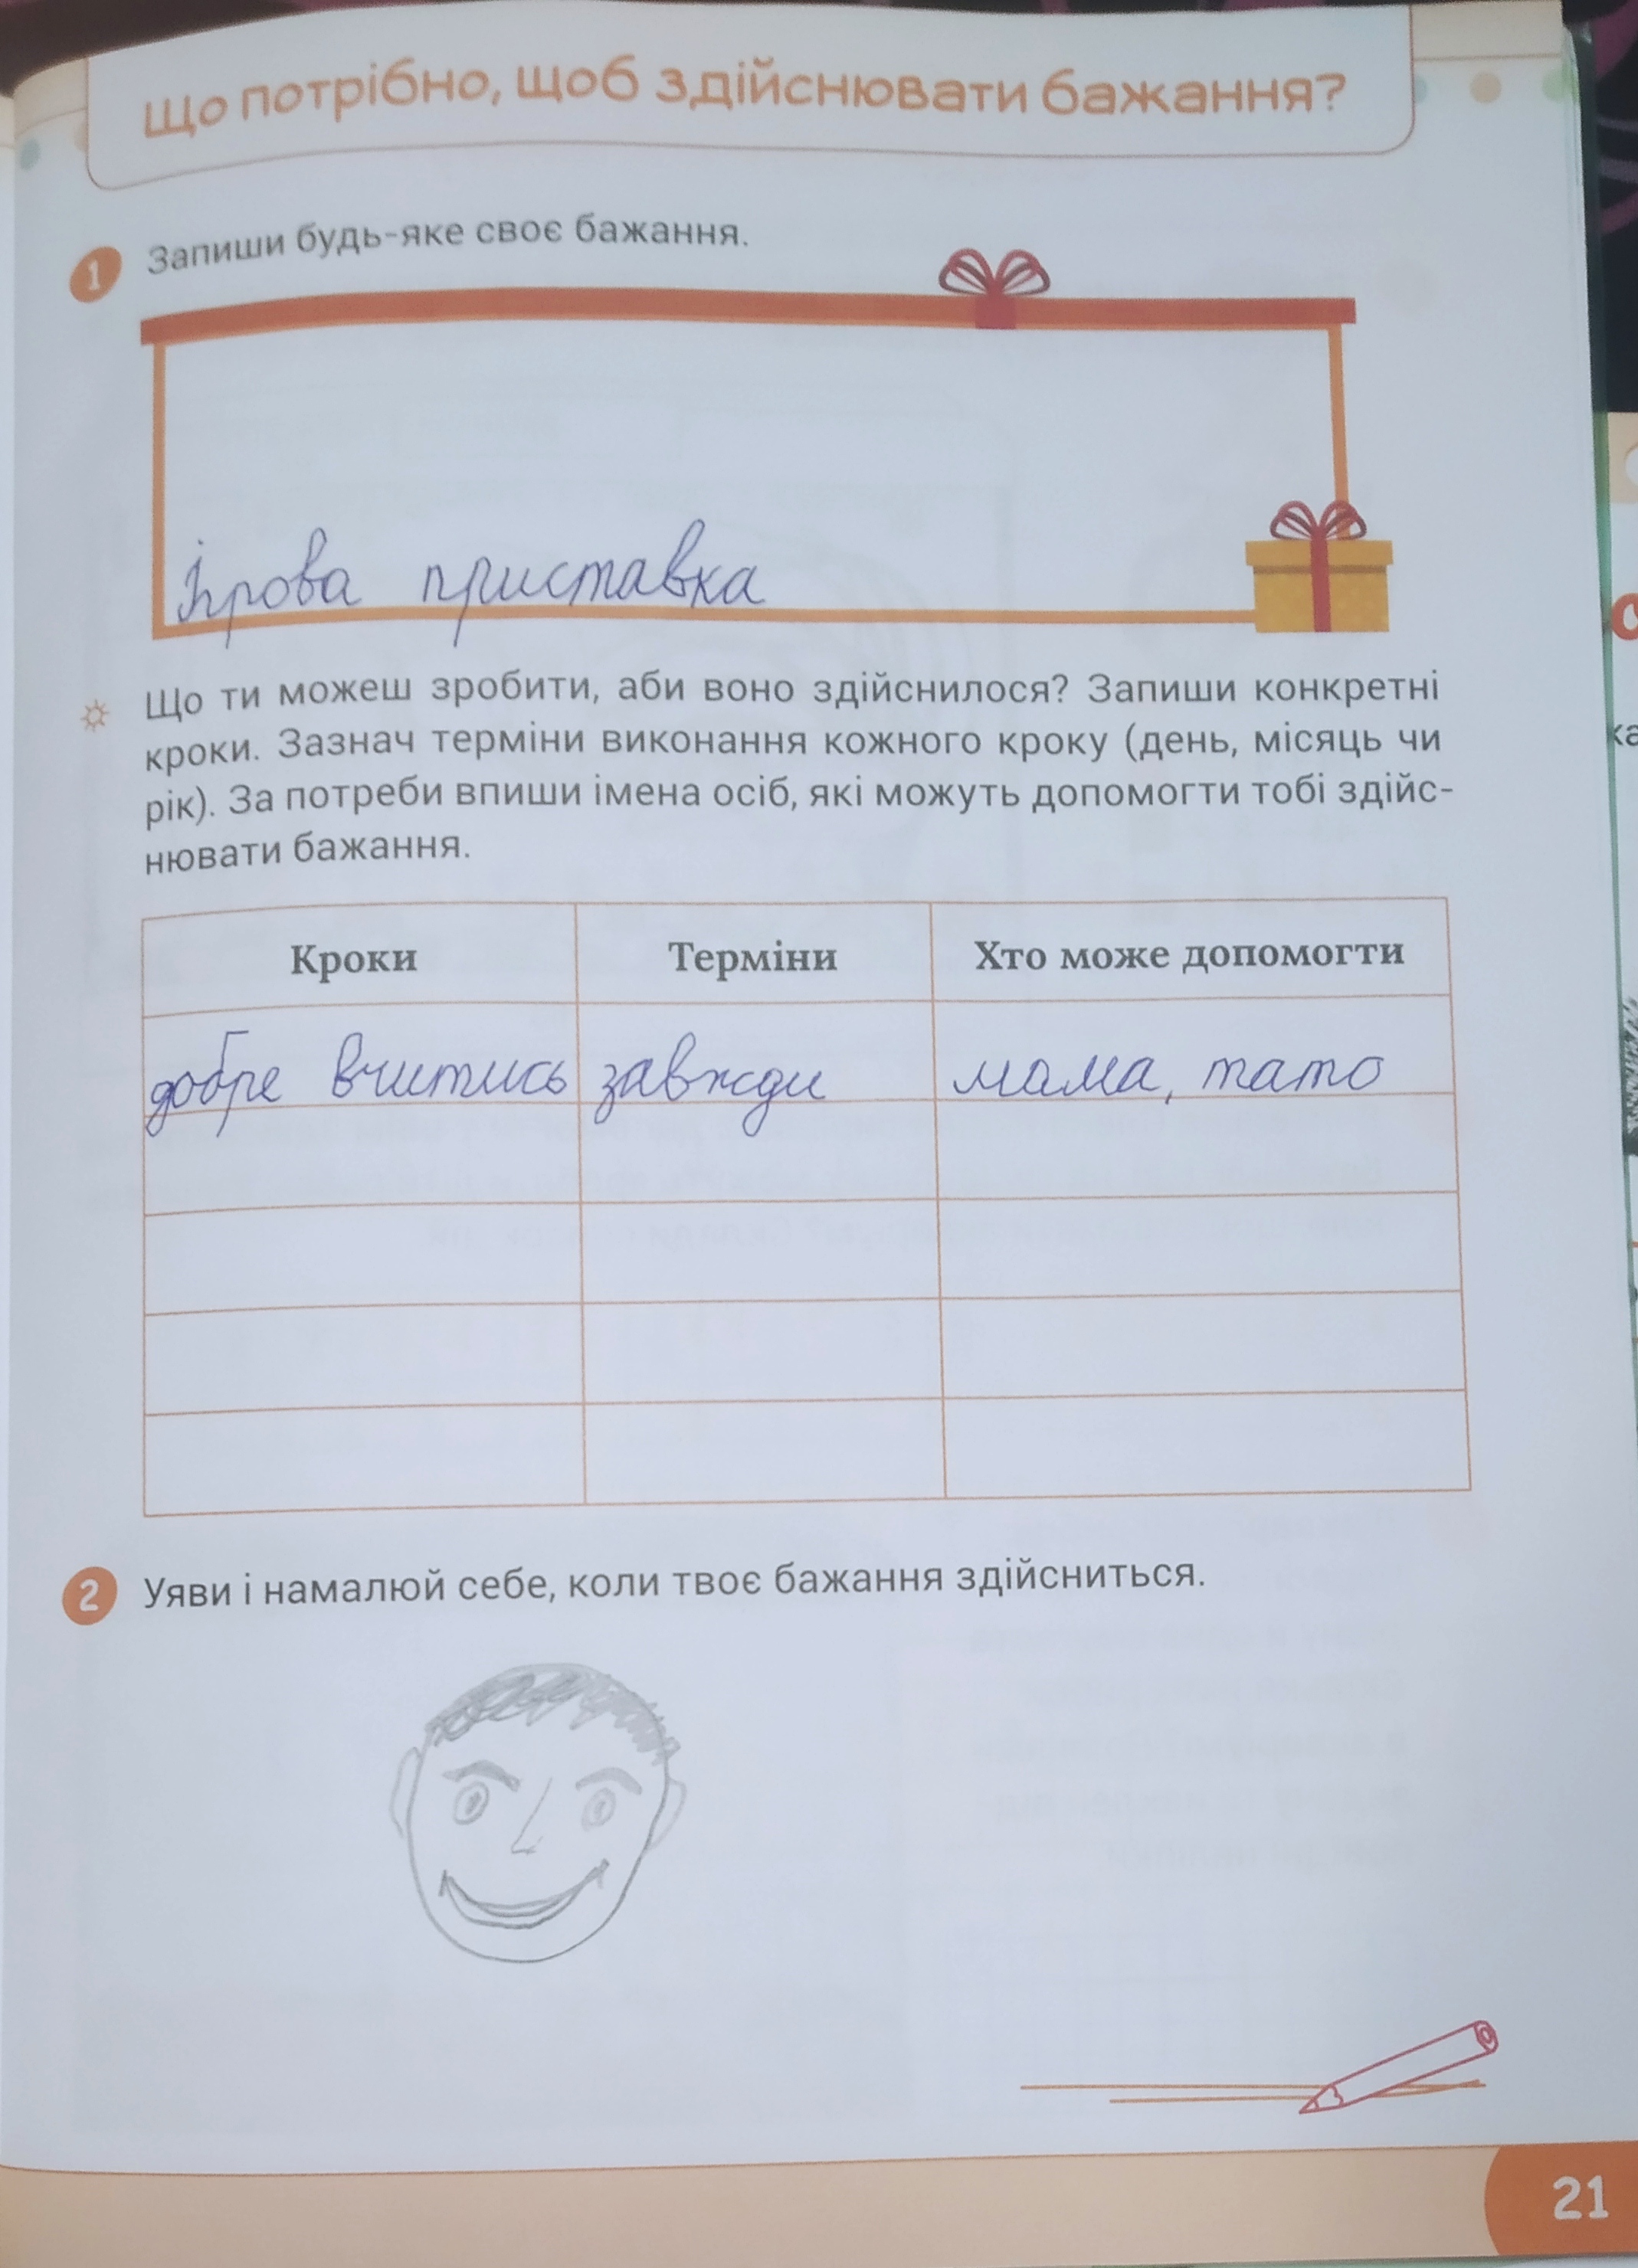 Що потрібно, щоб здійснювати бажання?
1 Запиши будь-яке своє бажання.
Ігрова приставка
Що ти можеш зробити, аби воно здійснилося? Запиши конкретні
кроки. Зазнач терміни виконання кожного кроку (день, місяць чи
рік). За потреби впиши імена осіб, які можуть допомогти тобі здійс-
нювати бажання.
Кроки Терміни Хто може допомогти
добре вчитись завжди мама, тато
2 Уяви і намалюй себе, коли твоє бажання здійсниться.
21